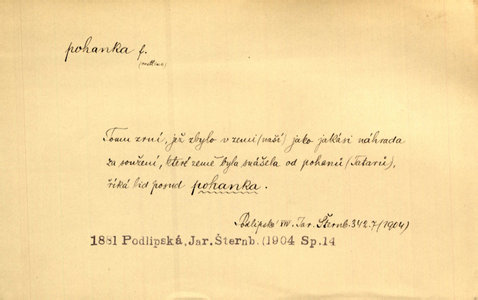 pohanka f.
Tomu zrní, jež zbylo v zemi (naší) jako jakási náhrada
za soužení, které země byla snášela od pohanů (Tatarů),
říká lid posud pohanka.
Podlipská Jar. Šternb. 342.7 (1904)
1881 Podlipská, Jar. Šternb. (1904 Sp. 14